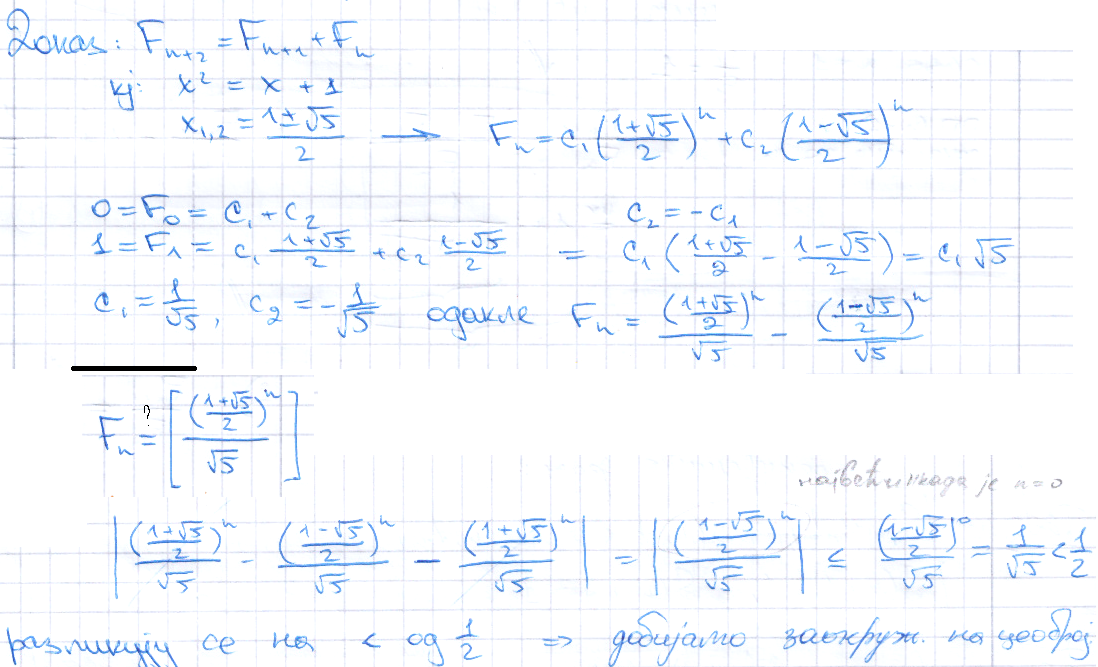 Доказ: F_{n+2} = F_{n+1} + F_n
кј: x² = x + 1
x_{1,2} = \frac{1±√5}{2} → F_n = c_1 (\frac{1+√5}{2})^n + c_2 (\frac{1-√5}{2})^n
0 = F_0 = c_1 + c_2 c_2 = -c_1
1 = F_1 = c_1 \frac{1+√5}{2} + c_2 \frac{1-√5}{2} = c_1 (\frac{1+√5}{2} - \frac{1-√5}{2}) = c_1 √5
c_1 = \frac{1}{√5}, c_2 = -\frac{1}{√5} одакле F_n = \frac{(\frac{1+√5}{2})^n}{√5} - \frac{(\frac{1-√5}{2})^n}{√5}
F_n \overset{?}{=} [\frac{(\frac{1+√5}{2})^n}{√5}]
највећи када је n=0
|\frac{(\frac{1+√5}{2})^n}{√5} - \frac{(\frac{1-√5}{2})^n}{√5} - \frac{(\frac{1+√5}{2})^n}{√5}| = |\frac{(\frac{1-√5}{2})^n}{√5}| ≤ \frac{(\frac{1-√5}{2})^0}{√5} = \frac{1}{√5} < \frac{1}{2}
разликују се на < од \frac{1}{2} ⇒ добијамо заокруж. на цео број